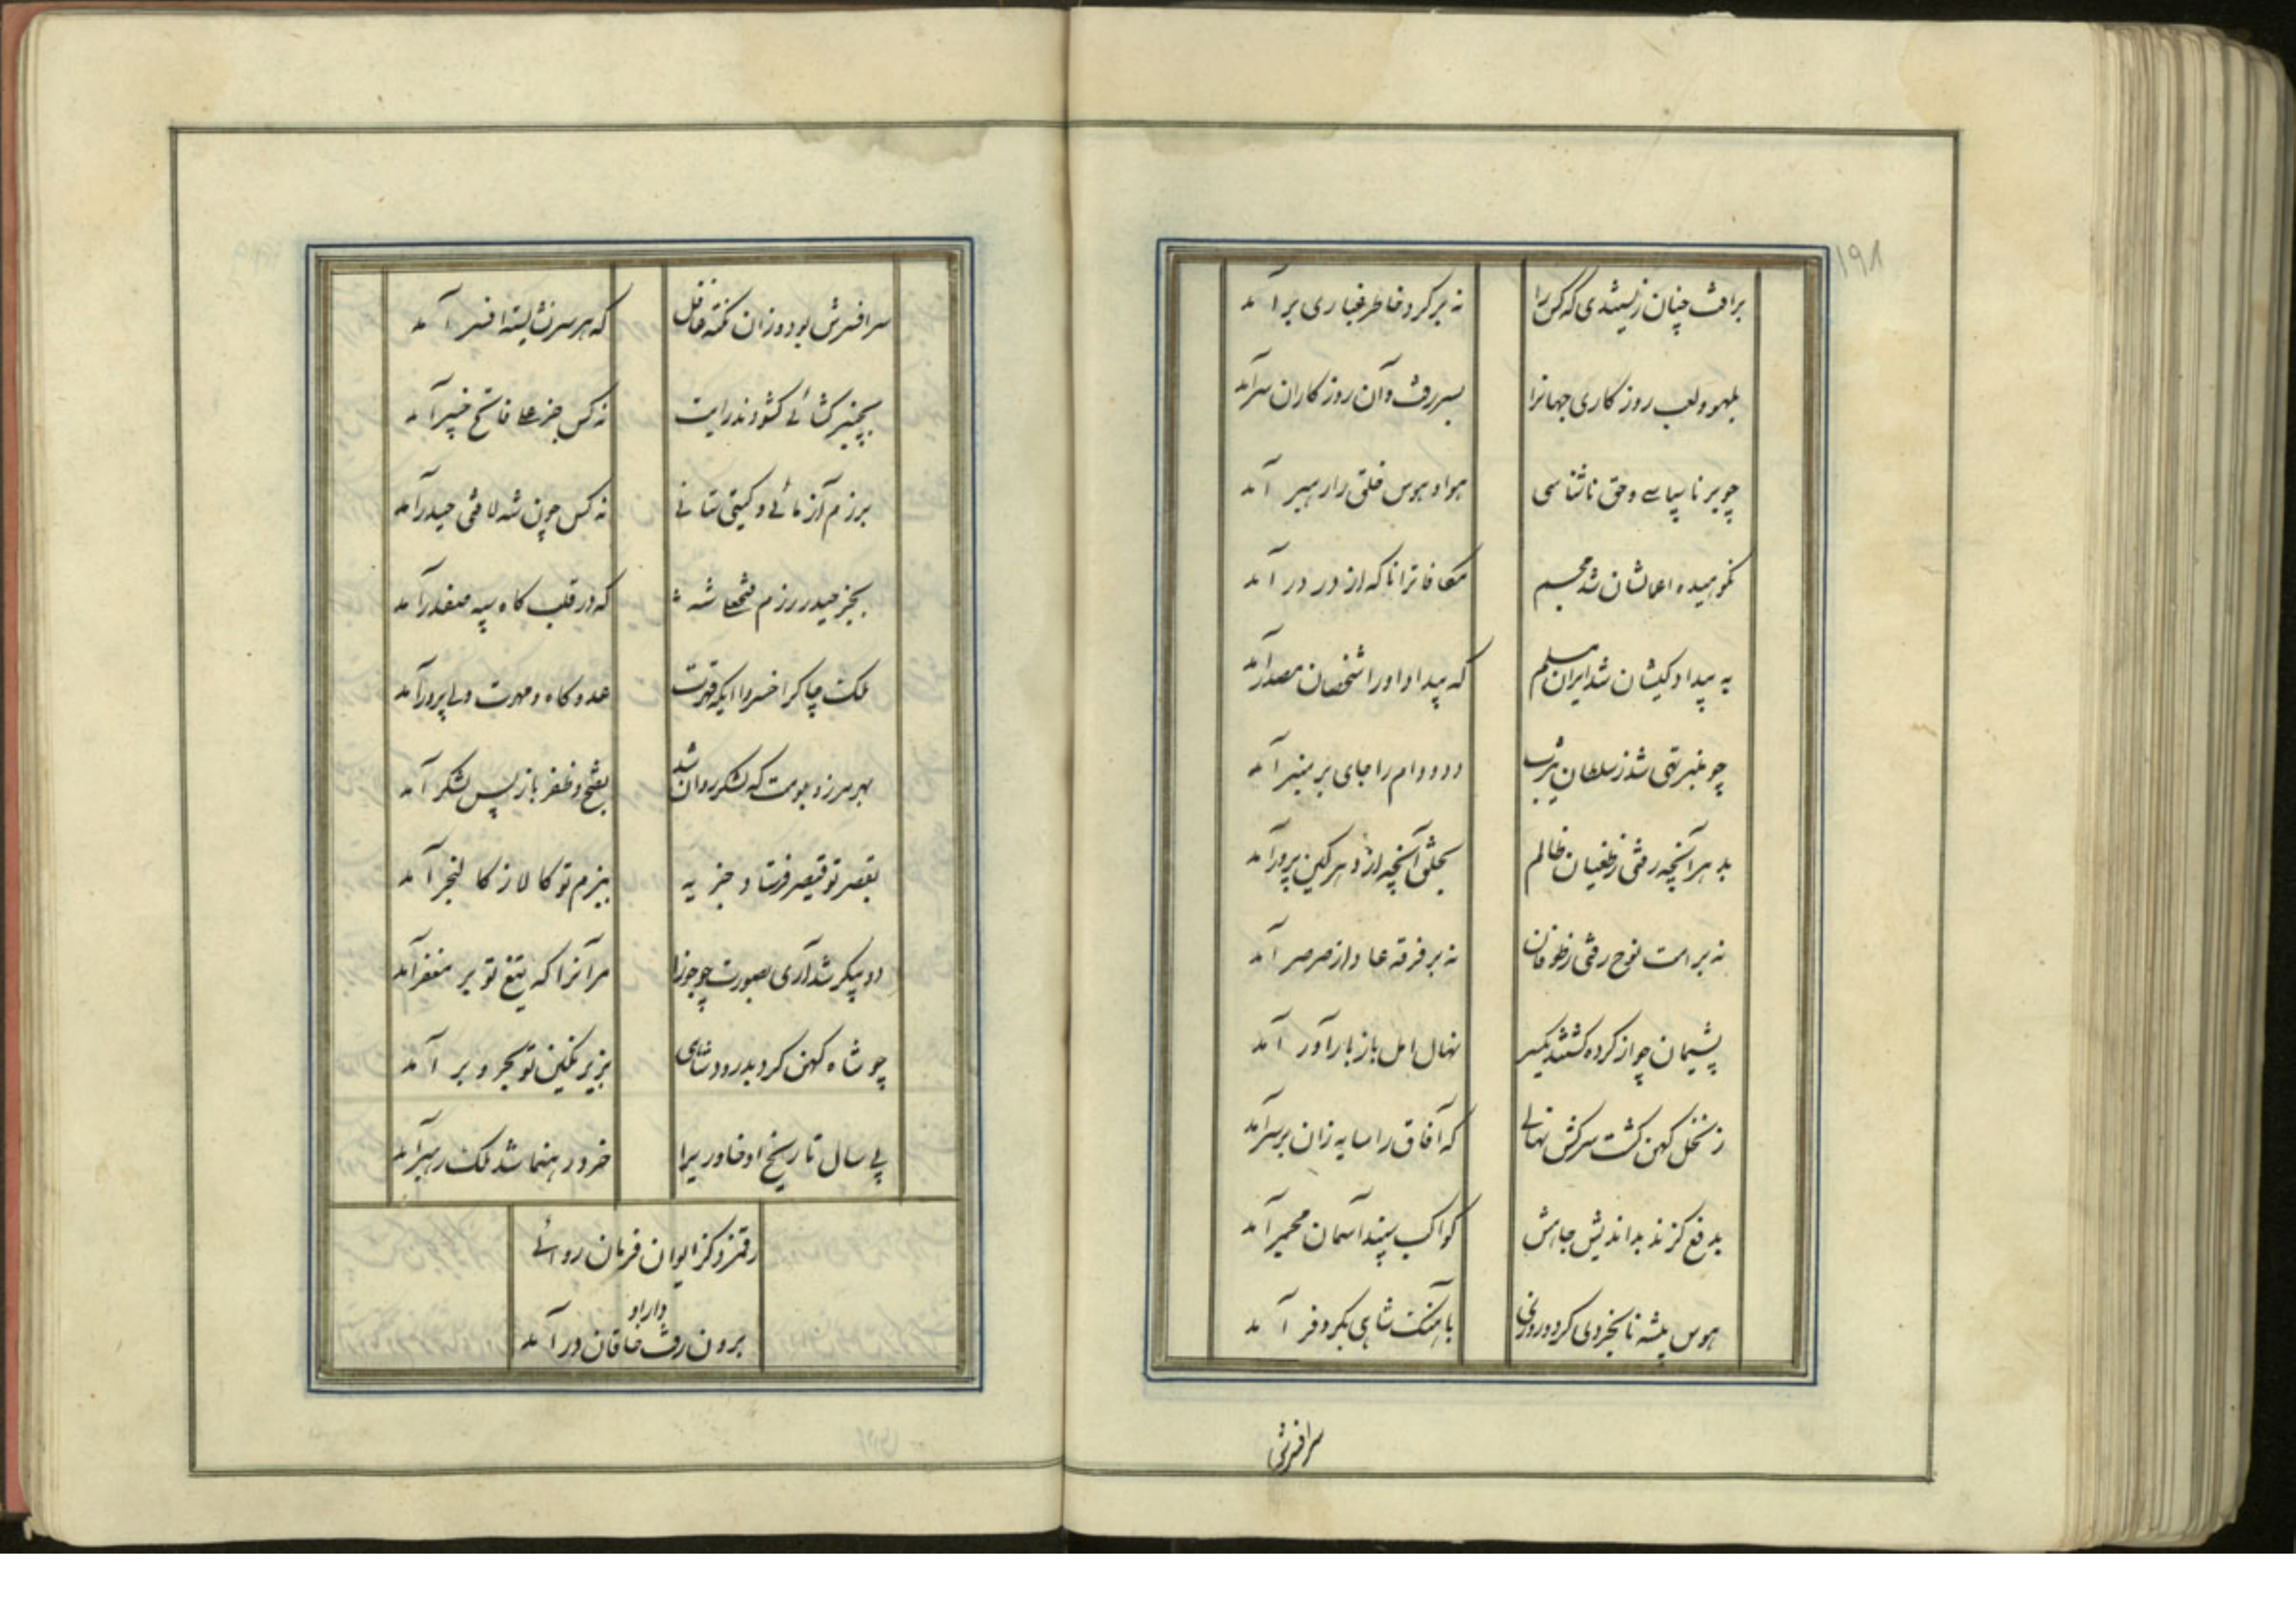 ۱۹۸
برافت چنان زیستندی که کس را نه بر گرد خاطر غباری بر آمد
بلهو و لعب روزکاری جهانرا بسر رفت و آن روزکاران سرآمد
چو بر ناسپاسی و حق ناشناسی هوا و هوس خلق را رهبر آمد
نکوهیده اعمالشان شد مجسم مکافاترا ناکه از در در آمد
به بیدادکیشان شد ایران مسلم که بیداد اوراشخصان مصدرآمد
چو منبر تهی شد ز سلطان یثرب دد و دام را جای بر منبر آمد
بد هر آنچه رفتی ز طغیان ظالم بخلق آنچه از دهر کین پرور آمد
نه بر امت نوح رفتی ز طوفان نه بر فرقه عاد از صرصر آمد
پشیمان چو از کرده کشتند یکسر نهال امل باز بارآور آمد
ز نخل کهن کشت سرکش نهالی که آفاق را سایه زان بر سرآمد
بدفع کزند بداندیش جاهش کواکب سپند آسمان مجمر آمد
هوس پیشه نابخردی کرد و روزی باهنک شاهی بکر و فر آمد
سرافرش
سرافسرش بود وزان نکته غافل که هر سر نه شایسته افسر آمد
بخیبر کشائی کشودند رایت نه کس جز علی فاتح خیبر آمد
برزم آزمائی و کیتی ستانی نه کس چون شه لافتی حیدر آمد
بجز حیدر رزم فتحعلی شه که در قلب کاه سپه صفدر آمد
ملک چاکرا خسروا ایکه قهرت عدو کاه و مهرت ولی پرور آمد
بهر مرز و بومت که لشکر روان شد بفتح و ظفر باز پس لشکر آمد
بقصر تو قیصر فرستاد جزیه ببزم تو کالا ز کالنجر آمد
دو پیکر شد آری بصورت چو جوزا مر آنرا که تیغ تو بر مغفر آمد
چو شاه کهن کرد بدرود شاهی بزیر نکین تو بحر و بر آمد
پی سال تاریخ او خاوریرا خرد رهنما شد ملک رهبر آمد
رقمزد کز ایوان فرمان روائی
برون رفت دارا و خاقان در آمد